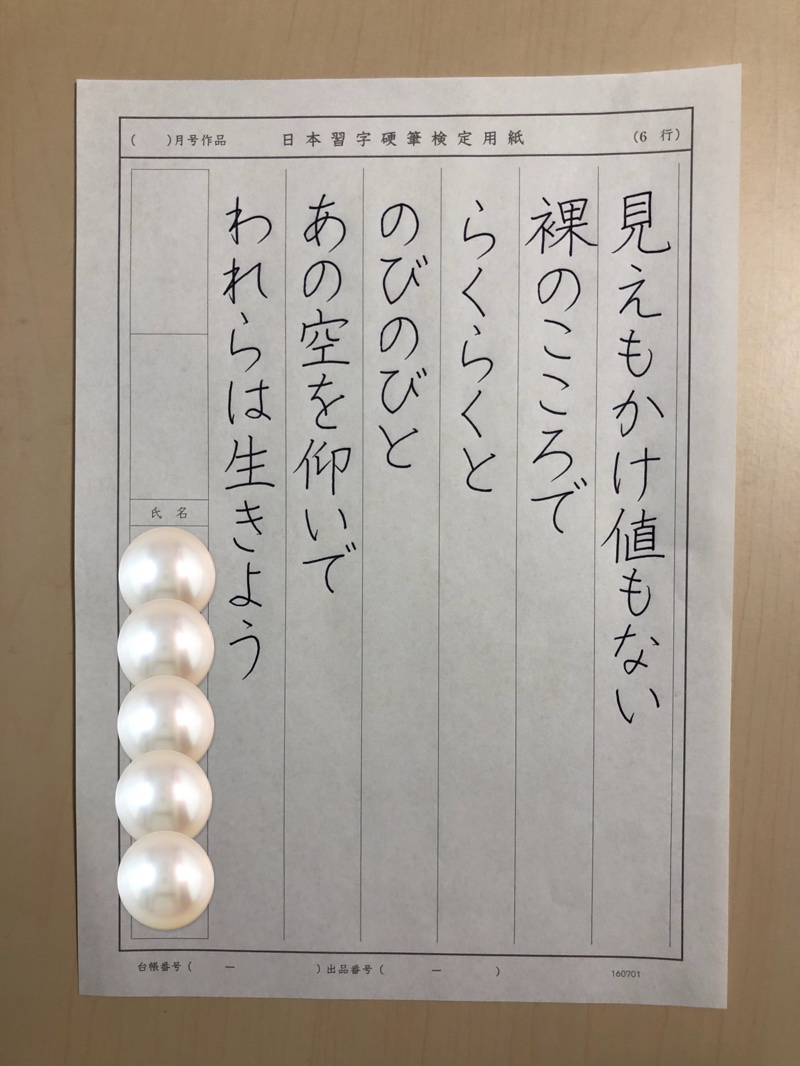 ( )月号作品 日本習字硬筆検定用紙 (6 行)
見えもかけ値もない
裸のこころで
らくらくと
のびのびと
あの空を仰いで
われらは生きよう
氏 名
台帳番号( ー ) 出品番号( ー )
160701